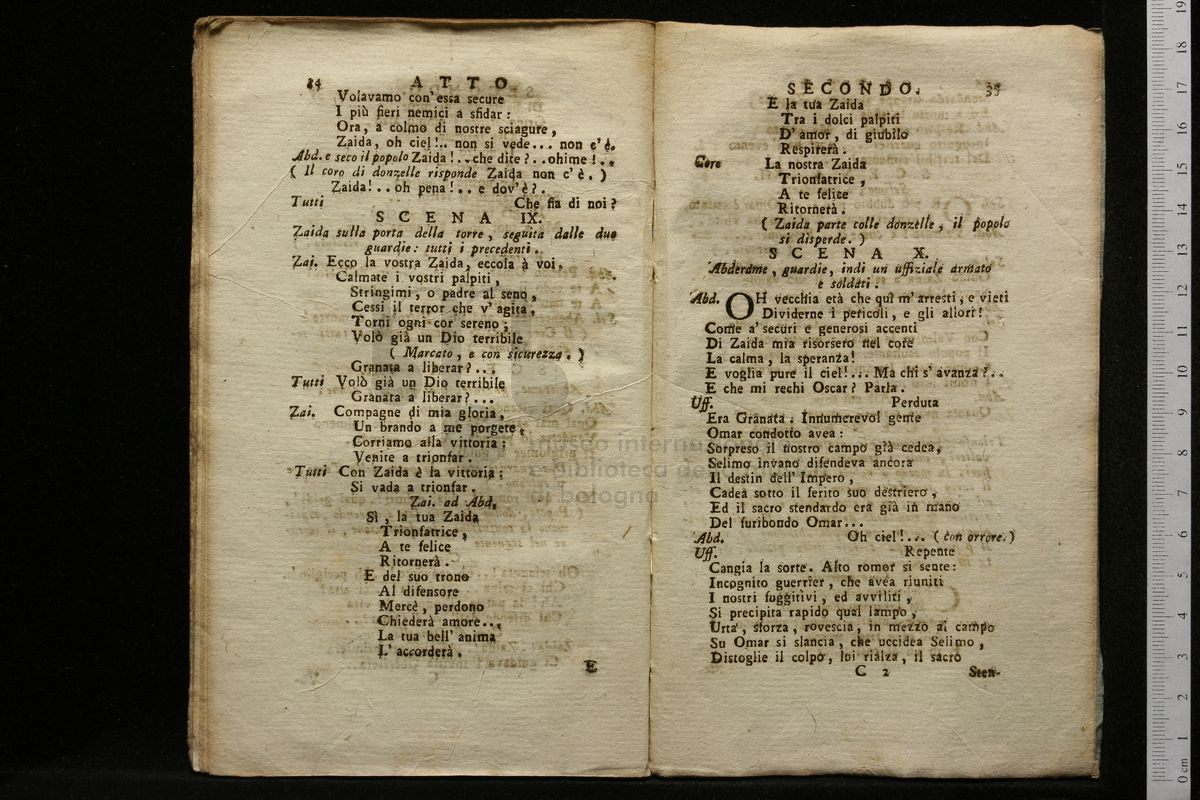 34 ATTO
Volavamo con'essa secure
I più fieri nemici a sfidar:
Ora, a colmo di nostre sciagure,
Zaida, oh ciel!.. non si vede... non c'è.
Abd. e seco il popolo Zaida!..che dite?..ohime!..
( Il coro di donzelle risponde Zaida non c'è. )
Zaida!..oh pena!.. e dov'è?.
Tutti Che fia di noi?
SCENA IX.
Zaida sulla porta della torre, seguita dalle due
guardie: tutti i precedenti.
Zai. Ecco la vostra Zaida, eccola à voi,
Calmate i vostri palpiti,
Stringimi, o padre al seno,
Cessi il terror che v'agita,
Torni ogni cor sereno;
Volò già un Dio terribile
( Marcato, e con sicurezza. )
Granata a liberar?...
Tutti Volò già un Dio terribile
Granata a liberar?...
Zai. Compagne di mia gloria,
Un brando a me porgete,
Corriamo alla vittoria:
Venite a trionfar.
Tutti Con Zaida è la vittoria:
Si vada a trionfar.
Zai. ad Abd.
Sì, la tua Zaida
Trionfatrice,
A te felice
Ritornerà.
E del suo trono
Al difensore
Mercè, perdono
Chiederà amore...
La tua bell' anima
L'accorderà.
E
SECONDO. 35
E la tua Zaida
Tra i dolci palpiti
D'amor, di giubilo
Respirerà.
Coro La nostra Zaida
Trionfatrice,
A te felice
Ritornerà.
( Zaida parte colle donzelle, il popolo
si disperde. )
SCENA X.
Abderame, guardie, indi un uffiziale armato
e soldati.
Abd. OH vecchia età che quì m'arresti, e vieti
Dividerne i pericoli, e gli allori!
Come a' securi e generosi accenti
Di Zaida mia risorsero nel core
La calma, la speranza!
E voglia pure il ciel!... Ma chi s'avanza?..
E che mi rechi Oscar? Parla.
Uff. Perduta
Era Granata. Innumerevol gente
Omar condotto avea:
Sorpreso il nostro campo già cedea,
Selimo invano difendeva ancora
Il destin dell' Impero,
Cadea sotto il ferito suo destriero,
Ed il sacro stendardo era già in mano
Del furibondo Omar...
Abd. Oh ciel!... ( con orrore. )
Uff. Repente
Cangia la sorte. Alto romor si sente:
Incognito guerrier, che avea riuniti
I nostri fuggitivi, ed avviliti,
Si precipita rapido qual lampo,
Urta, sforza, rovescia, in mezzo al campo
Su Omar si slancia, che uccidea Selimo,
Distoglie il colpo, lui rialza, il sacro
C 2 Sten-
museo internazionale
e biblioteca della
di bologna